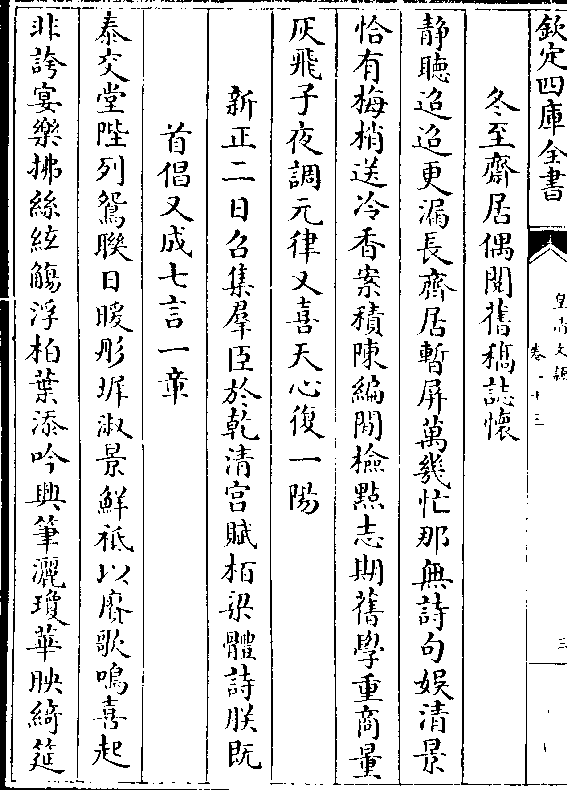 欽定四庫全書
皇清文穎
卷一十三
三
冬至齋居偶閱舊稿誌懷
靜聽迢迢更漏長齋居暫屏萬幾忙那無詩句娛清景
恰有梅梢送冷香案積陳編閱檢㸃志期舊學重商量
灰飛子夜調元律又喜天心復一陽
新正二日召集羣臣於乾清宫賦柏梁體詩朕既
首倡又成七言一章
泰交堂陛列鴛聨日暖彤墀淑景鮮祗以賡歌鳴喜起
非誇宴樂拂絲絃觴浮柏葉添吟興筆灑瓊華映綺筵